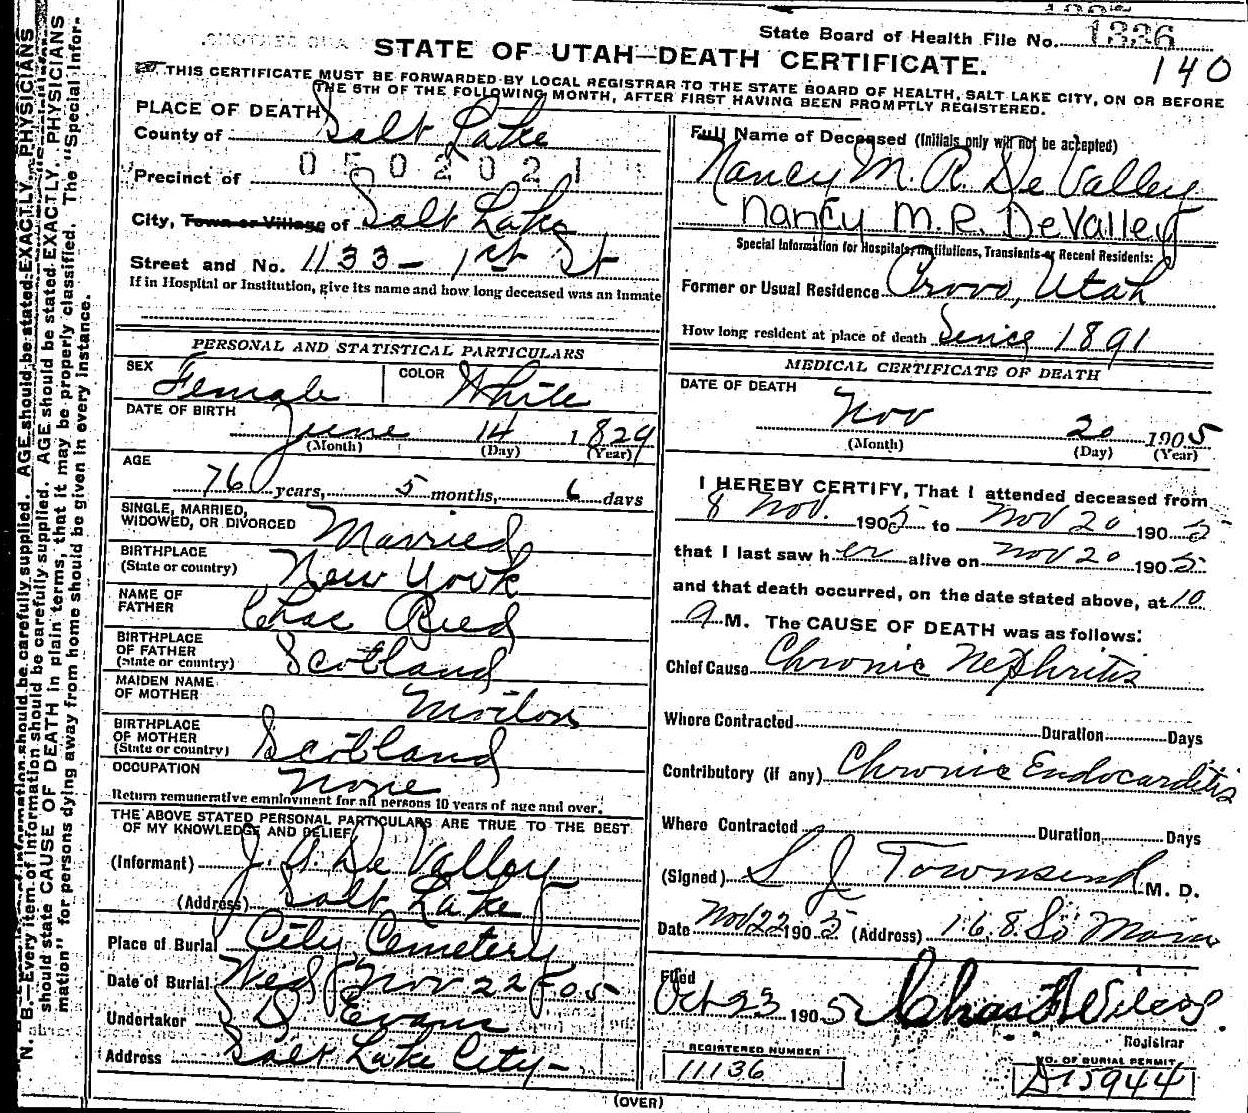 State Board of Health File No. 1336
140
STATE OF UTAH—DEATH CERTIFICATE.
THIS CERTIFICATE MUST BE FORWARDED BY LOCAL REGISTRAR TO THE STATE BOARD OF HEALTH, SALT LAKE CITY, ON OR BEFORE
THE 5TH OF THE FOLLOWING MONTH, AFTER FIRST HAVING BEEN PROMPTLY REGISTERED.
PLACE OF DEATH
County of Salt Lake
0502021
Precinct of
City, Town or Village of Salt Lake
Street and No. 1133 - 1st St
If in Hospital or Institution, give its name and how long deceased was an inmate
PERSONAL AND STATISTICAL PARTICULARS
SEX Female COLOR White
DATE OF BIRTH June 14 1829
(Month) (Day) (Year)
AGE
76 years, 5 months, 6 days
SINGLE, MARRIED,
WIDOWED, OR DIVORCED Married
BIRTHPLACE
(State or country) New York
NAME OF
FATHER Chas Reed
BIRTHPLACE
OF FATHER
(State or country) Scotland
MAIDEN NAME
OF MOTHER
BIRTHPLACE
OF MOTHER
(State or country) Scotland
OCCUPATION None
Return remunerative employment for all persons 10 years of age and over.
THE ABOVE STATED PERSONAL PARTICULARS ARE TRUE TO THE BEST
OF MY KNOWLEDGE AND BELIEF
(Informant) De Valley
(Address) Salt Lake
Place of Burial City Cemetery
Date of Burial Wed Nov 22-05
Undertaker Evans
Address Salt Lake City-
Full Name of Deceased (Initials only will not be accepted)
Nancy M. R. De Valley
Nancy M.R. DeValley
Special Information for Hospitals, Institutions, Transients or Recent Residents:
Former or Usual Residence Provo, Utah
How long resident at place of death Since 1891
MEDICAL CERTIFICATE OF DEATH
DATE OF DEATH
Nov 20 1905
(Month) (Day) (Year)
I HEREBY CERTIFY, That I attended deceased from
8 Nov. 1905 to Nov 20 1905
that I last saw her alive on Nov 20 1905
and that death occurred, on the date stated above, at 10
a M. The CAUSE OF DEATH was as follows:
Chief Cause Chronic Nephritis
Where Contracted Duration Days
Contributory (if any) Chronic Endocarditis
Where Contracted Duration Days
(Signed) S J Townsend M. D.
Date Nov 22 1905 (Address) 168 So Main
Filed
Oct 23 1905 Chas
Registrar
REGISTERED NUMBER
11136
NO. OF BURIAL PERMIT
D15944
(OVER)
N. B.—Every item of information should be carefully supplied. AGE should be stated EXACTLY. PHYSICIANS
should state CAUSE OF DEATH in plain terms, that it may be properly classified. The "Special Infor-
mation" for persons dying away from home should be given in every instance.